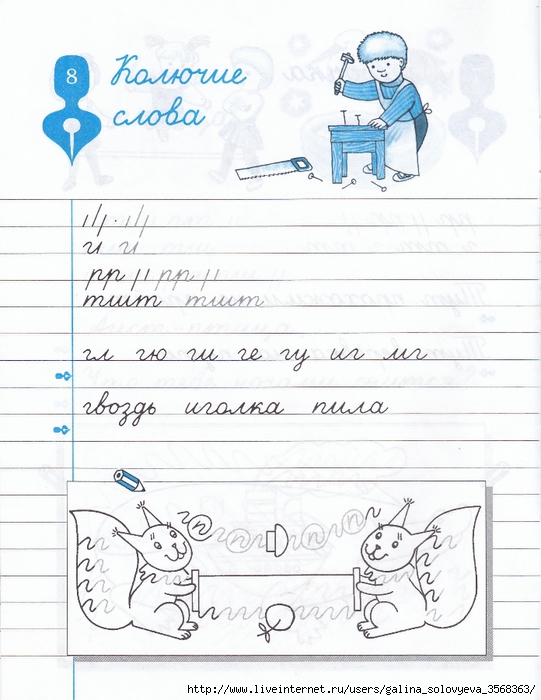 8
Колючие
слова
и и
рр рр
тшт тшт
гл гю ги ге гу иг мг
гвоздь иголка пила
http://www.liveinternet.ru/users/galina_solovyeva_3568363/